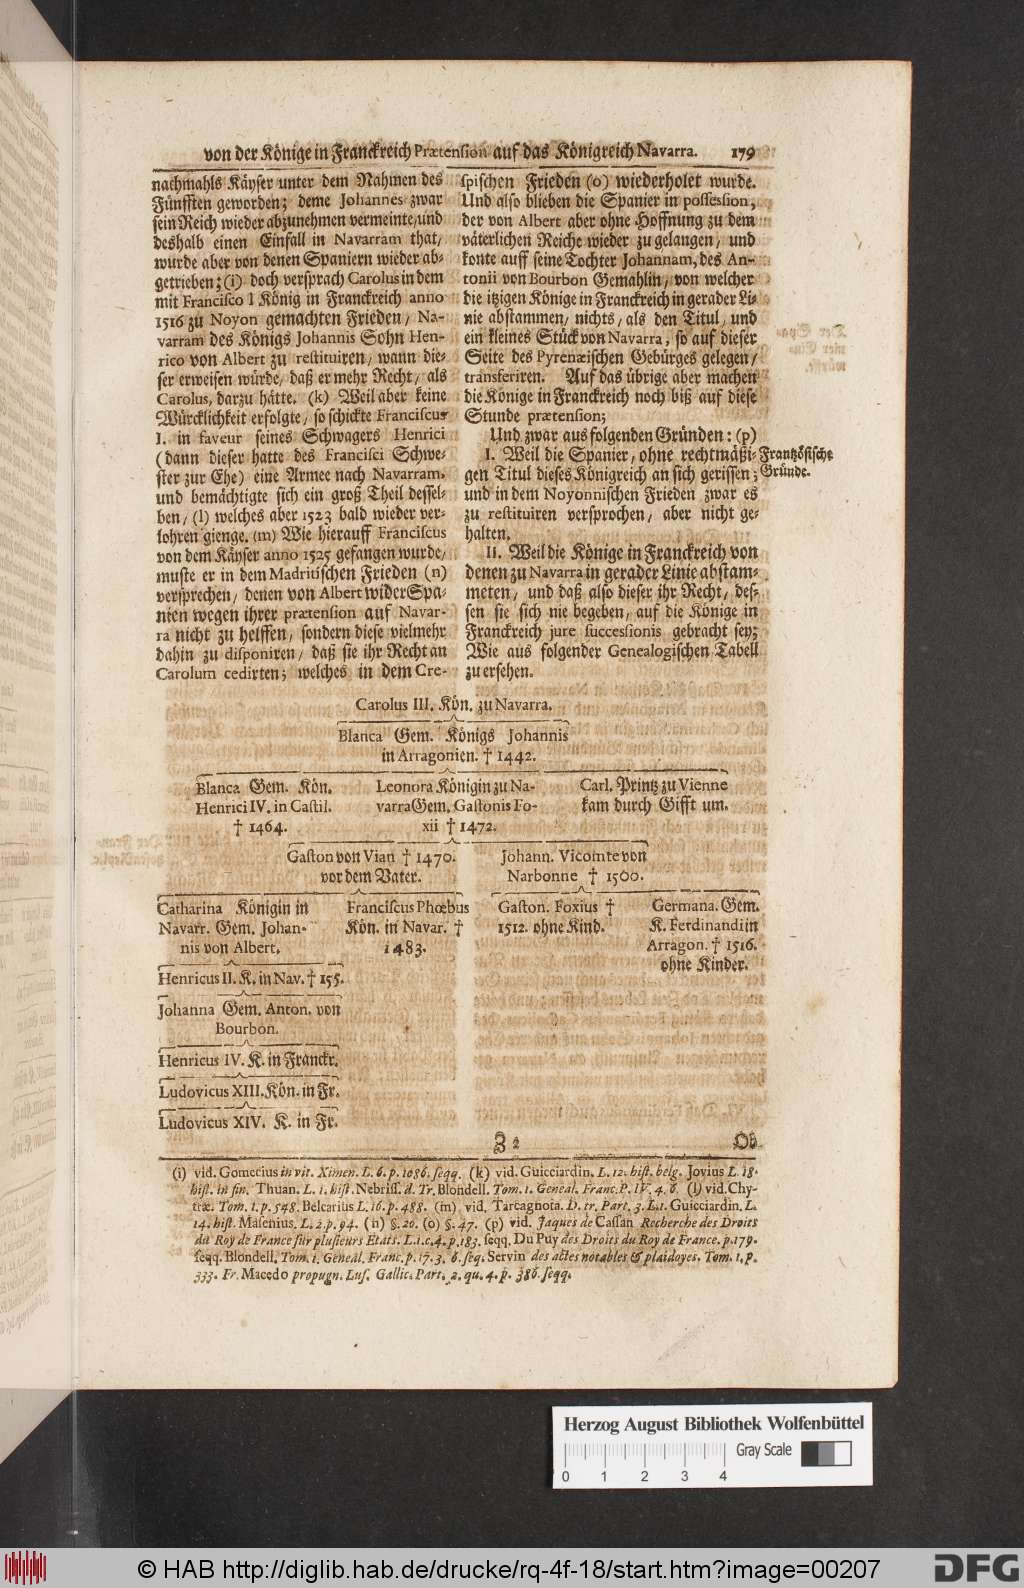 von der Könige in Franckreich Prætension auf das Königreich Navarra. 179
nachmahls Käyser unter dem Nahmen des
Fünfften geworden; deme Johannes zwar
sein Reich wieder abzunehmen vermeinte, und
deshalb einen Einfall in Navarram that/
wurde aber von denen Spaniern wieder ab-
getrieben; (i) doch versprach Carolus in dem
mit Francisco I König in Franckreich anno
1516 zu Noyon gemachten Frieden, Na-
varram des Königs Johannis Sohn Hen-
rico von Albert zu restituiren, wann die-
ser erweisen würde, daß er mehr Recht, als
Carolus, darzu hätte. (k) Weil aber keine
Würcklichkeit erfolgte, so schickte Franciscus
I. in faveur seines Schwagers Henrici
(dann dieser hatte des Francisci Schwe-
ster zur Ehe) eine Armee nach Navarram,
und bemächtigte sich ein groß Theil dessel-
ben, (l) welches aber 1523 bald wieder ver-
lohren gienge. (m) Wie hierauff Franciscus
von dem Käyser anno 1525 gefangen wurde,
muste er in dem Madritischen Frieden (n)
versprechen, denen von Albert wider Spa-
nien wegen ihrer prætension auf Navar-
ra nicht zu helffen, sondern diese vielmehr
dahin zu disponiren, daß sie ihr Recht an
Carolum cedirten; welches in dem Cre-
spischen Frieden (o) wiederholet wurde.
Und also blieben die Spanier in possession,
der von Albert aber ohne Hoffnung zu dem
väterlichen Reiche wieder zu gelangen, und
konte auff seine Tochter Johannam, des An-
tonii von Bourbon Gemahlin, von welcher
die itzigen Könige in Franckreich in gerader Li-
nie abstammen, nichts, als den Titul, und
ein kleines Stück von Navarra, so auf dieser
Seite des Pyrenæischen Gebürges gelegen,
transferiren. Auf das übrige aber machen
die Könige in Franckreich noch biß auf diese
Stunde prætension;
Und zwar aus folgenden Gründen: (p)
I. Weil die Spanier, ohne rechtmäßi-
gen Titul dieses Königreich an sich gerissen;
und in dem Noyonnischen Frieden zwar es
zu restituiren versprochen, aber nicht ge-
halten.
II. Weil die Könige in Franckreich von
denen zu Navarra in gerader Linie abstam-
meten, und daß also dieser ihr Recht, des-
sen sie sich nie begeben, auf die Könige in
Franckreich jure successionis gebracht sey;
Wie aus folgender Genealogischen Tabell
zu ersehen.
Frantzösische
Gründe.
Carolus III. Kön. zu Navarra.
Blanca Gem. Königs Johannis
in Arragonien. † 1442.
Blanca Gem. Kön.
Henrici IV. in Castil.
† 1464.
Leonora Königin zu Na-
varra Gem. Gastonis Fo-
xii † 1472.
Carl. Printz zu Vienne
kam durch Gifft um.
Gaston von Vian † 1470.
vor dem Vater.
Johann. Vicomte von
Narbonne † 1500.
Catharina Königin in
Navarr. Gem. Johan-
nis von Albert.
Franciscus Phœbus
Kön. in Navar. †
1483.
Gaston. Foxius †
1512. ohne Kind.
Germana. Gem.
K. Ferdinandi in
Arragon. † 1516.
ohne Kinder.
Henricus II. K. in Nav. † 155.
Johanna Gem. Anton. von
Bourbon.
Henricus IV. K. in Franckr.
Ludovicus XIII. Kön. in Fr.
Ludovicus XIV. K. in Fr.
Z 2
Ob
(i) vid. Gomecius in vit. Ximen. L. 6. p. 1086. seqq. (k) vid. Guicciardin. L. 12. hist. belg. Jovius L. 18.
hist. in fin. Thuan. L. 1. hist. Nebriss. d. Tr. Blondell. Tom. 1. Geneal. Franc. P. IV. 4. 6. (l) vid. Chy-
træ. Tom. 1. p. 548. Belcarius L. 16. p. 488. (m) vid. Tarcagnota. D. tr. Part. 3. L. 1. Guicciardin. L.
14. hist. Masenius. L. 2. p. 94. (n) §. 20. (o) §. 47. (p) vid. Jaques de Cassan Recherche des Droits
du Roy de France sur plusieurs Etats. L. 1. c. 4. p. 183. seqq. Du Puy des Droits du Roy de France. p. 179.
seqq. Blondell. Tom. 1. Geneal. Franc. p. 17. 3. 6. seq. Servin des actes notables & plaidoyes. Tom. 1. p.
333. Fr. Macedo propugn. Lus. Gallic. Part. 2. qu. 4. p. 386. seqq.
Herzog August Bibliothek Wolfenbüttel
Gray Scale
0 1 2 3 4
© HAB http://diglib.hab.de/drucke/rq-4f-18/start.htm?image=00207
DFG